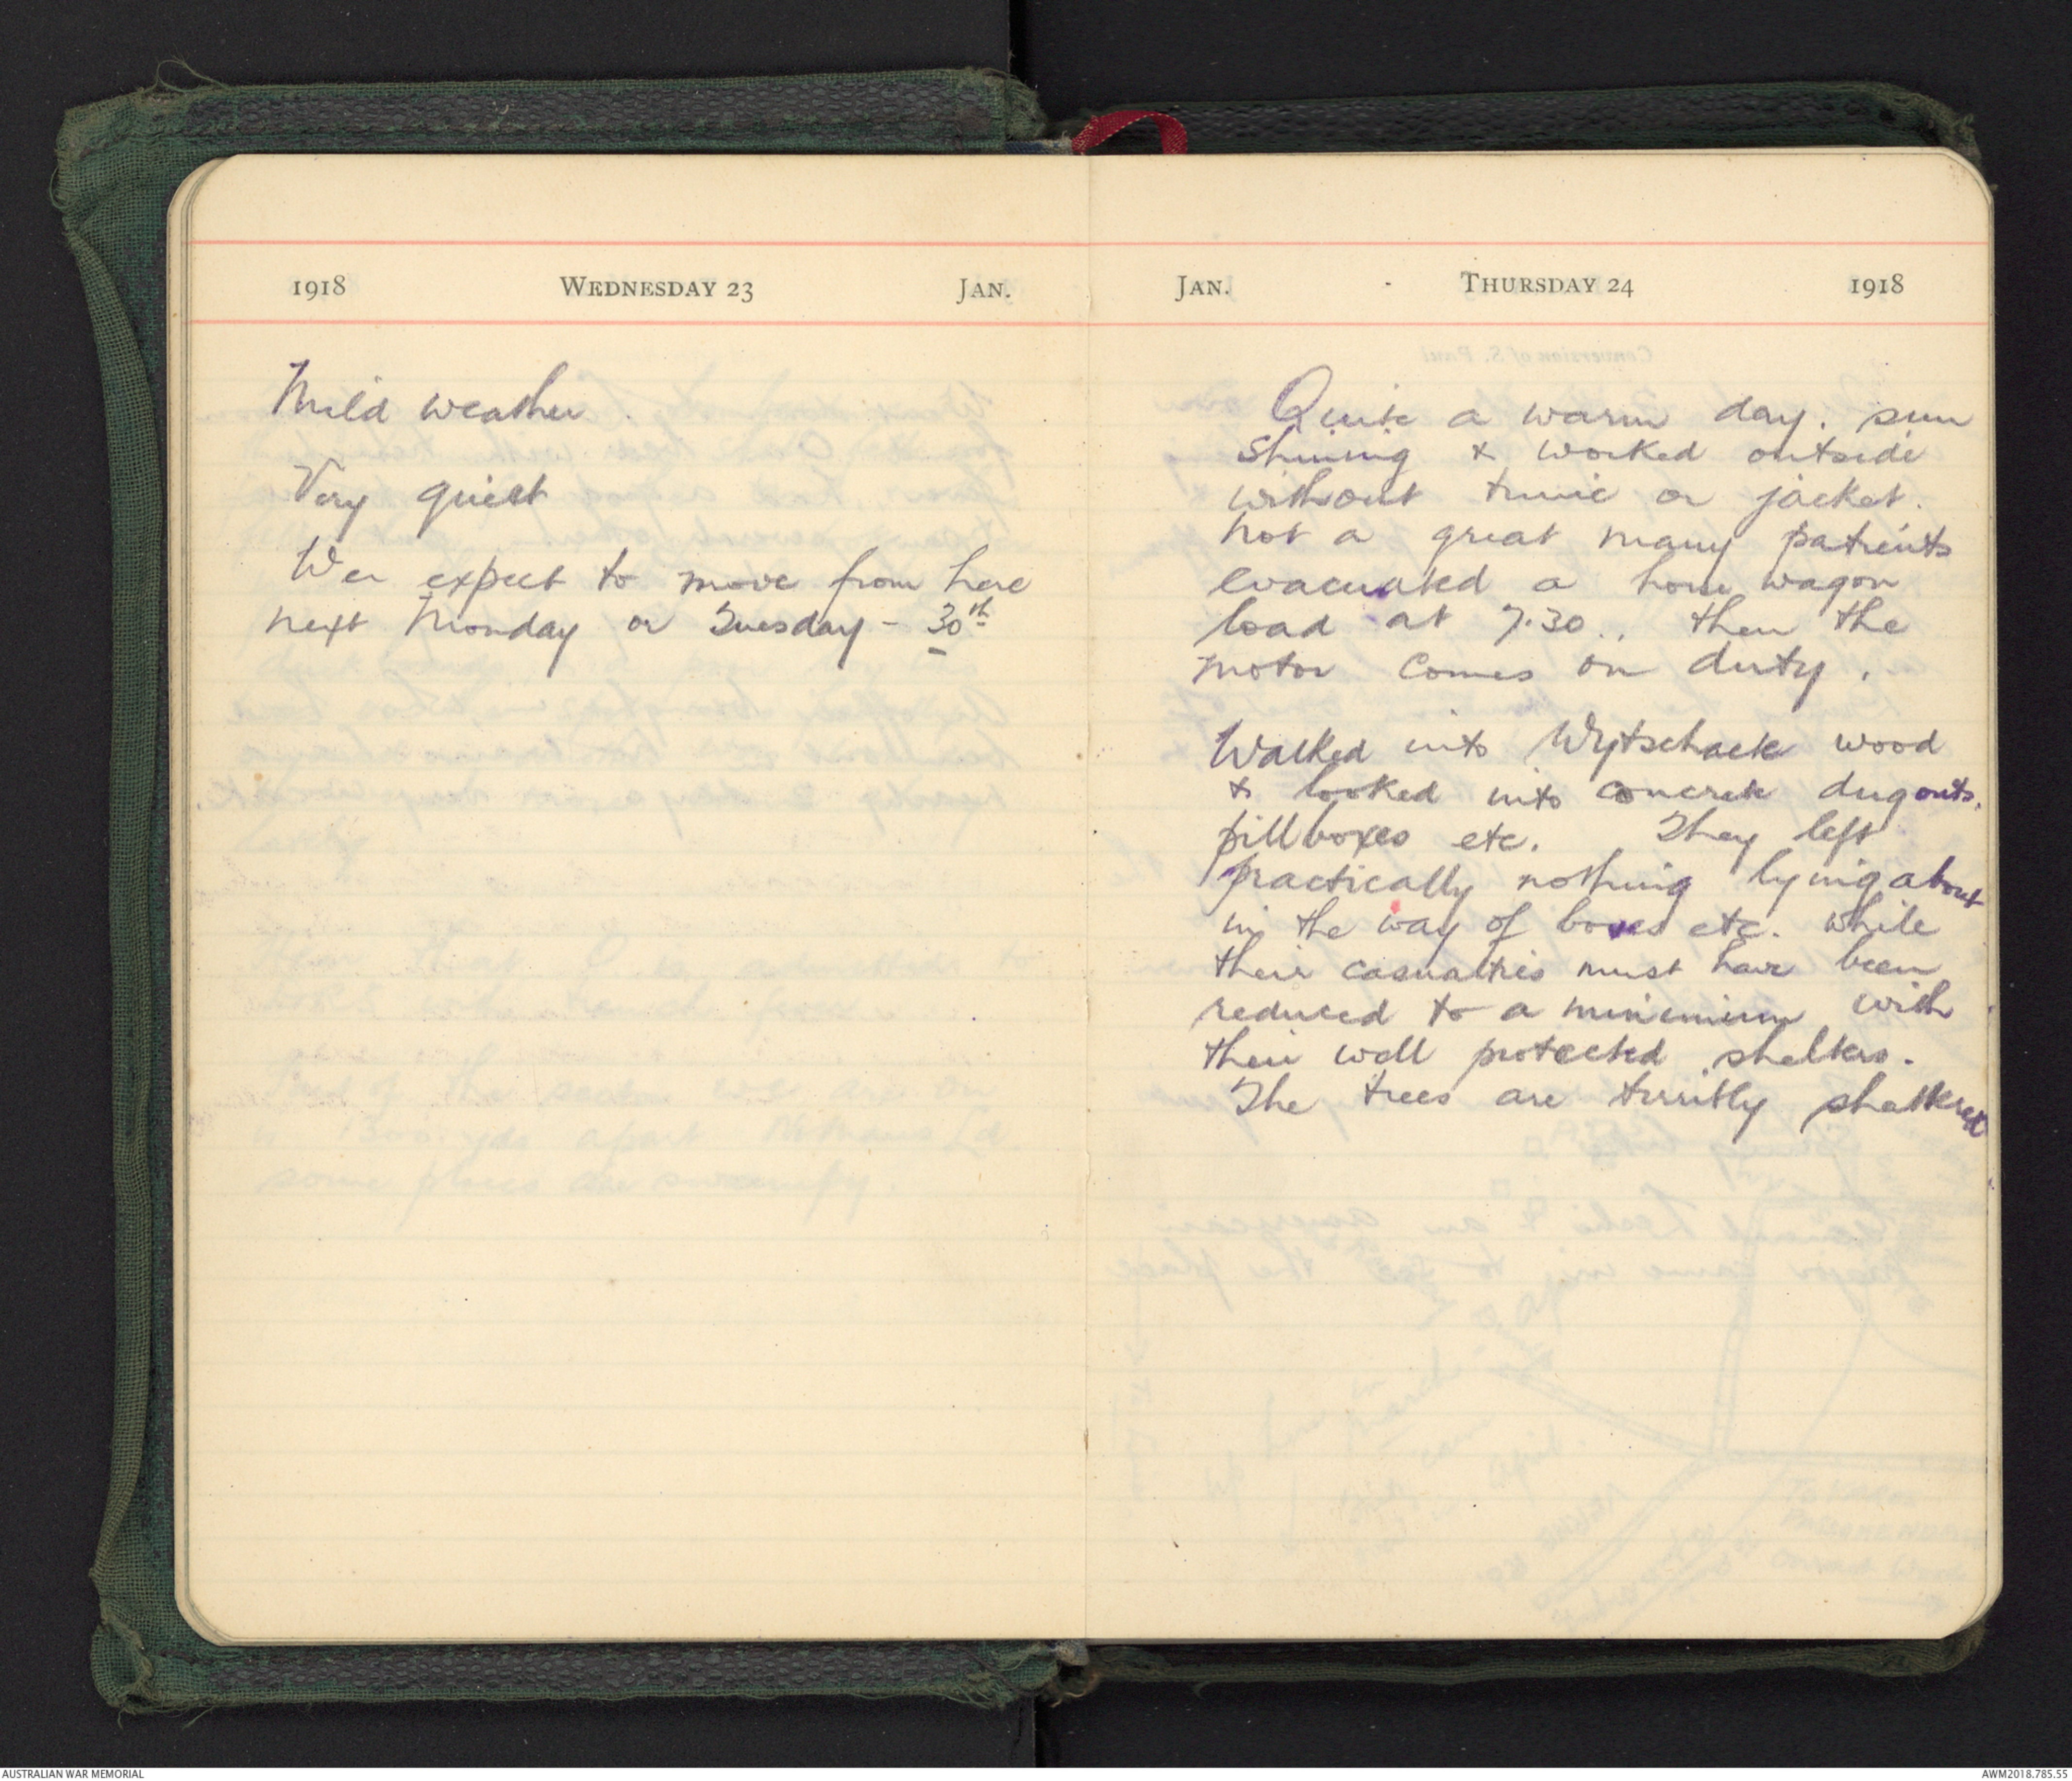 1918 WEDNESDAY 23 JAN.
Mild weather.
Very quiet
Wee expect to move from here
next Monday or Tuesday - 30th
JAN. THURSDAY 24 1918
Quite a warm day. sun
shining & worked outside
without tunic or jacket.
not a great many patients
evacuated a horse wagon
load at 7.30.. then the
motor comes on duty.
Walked into Wytschaete wood
& looked into concrete dugouts,
pillboxes etc. They left
practically nothing lying about
in the way of boxes etc. while
their casualties must have been
reduced to a minimium with
their well protected shelters.
The trees are terribly shattered
AUSTRALIAN WAR MEMORIAL
AWM2018.785.55